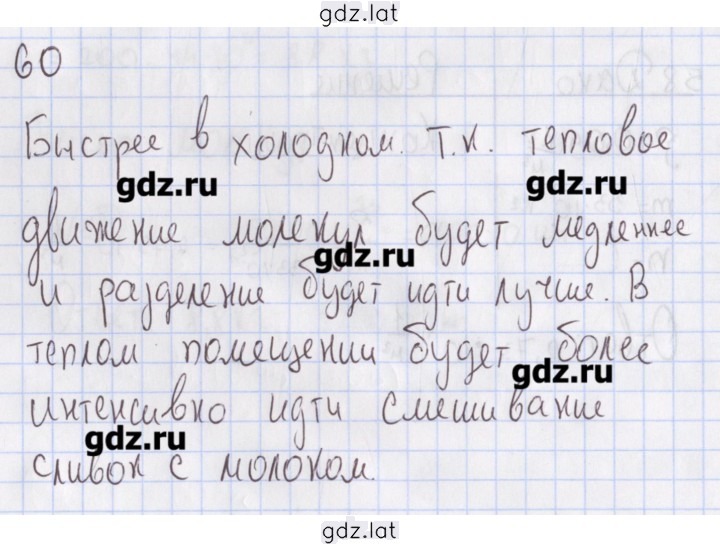 gdz.lat
60
Быстрее в холодном. Т.к. тепловое
gdz.ru
gdz.ru
движение молекул будет медленнее
gdz.ru
и разделение будет идти лучше. В
теплом помещении будет более
gdz.ru
интенсивно идти смешивание
gdz.ru
сливок с молоком.
gdz.lat